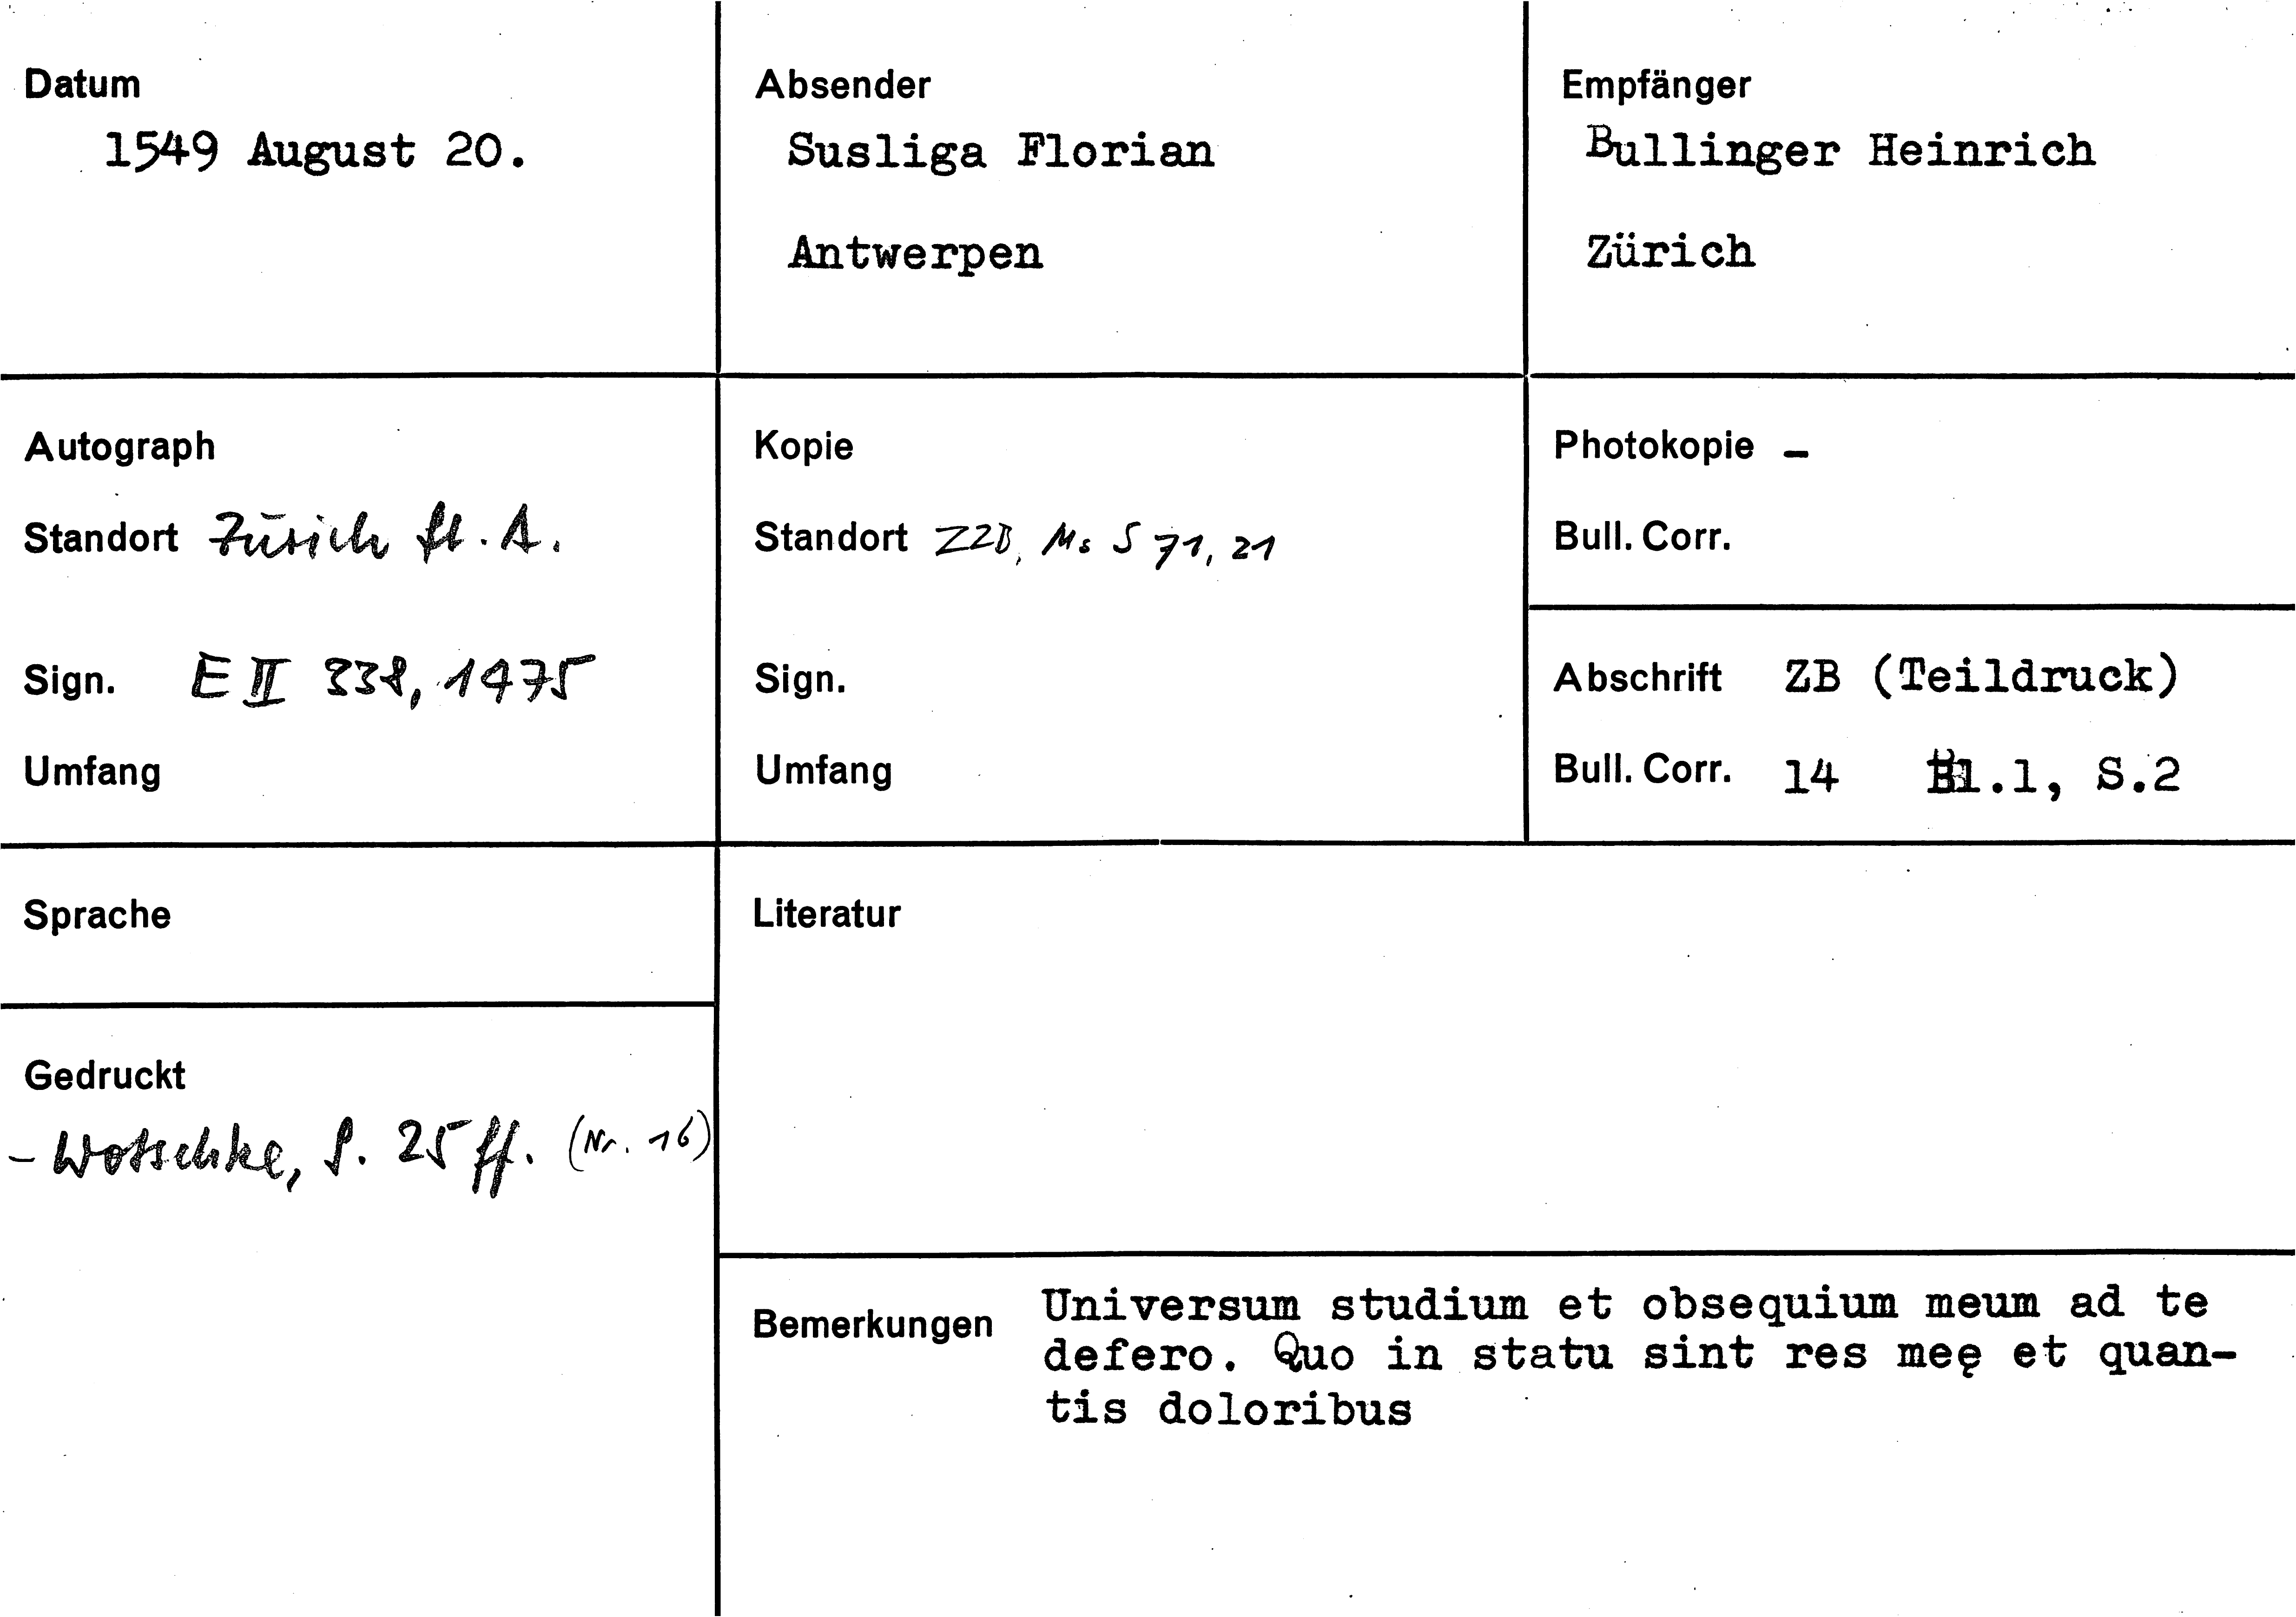 Datum
1549 August 20.
Absender
Susliga Florian
Antwerpen
Empfänger
Bullinger Heinrich
Zürich
Autograph
Standort Zürich St. A.
Sign. E II 338, 1475
Umfang
Kopie
Standort ZZB, Ms S 71, 21
Sign.
Umfang
Photokopie -
Bull. Corr.
Abschrift ZB (Teildruck)
Bull. Corr. 14 Bl.1, S.2
Sprache
Gedruckt
- Wotschke, S. 25 ff. (Nr. 16)
Literatur
Bemerkungen Universum studium et obsequium meum ad te
defero. Quo in statu sint res meę et quan-
tis doloribus